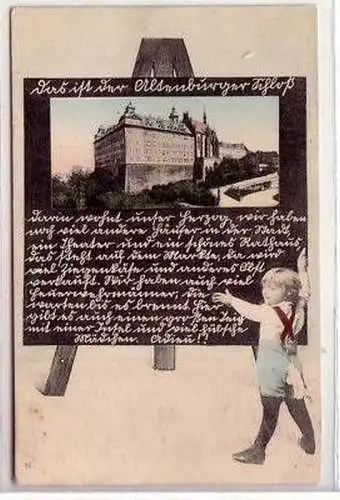 Das ist der Altenburger Schloß
darin wohnt unser Herzog, wir haben
noch viel andere Häuser in der Stadt,
ein Theater und ein schönes Rathaus
das steht auf dem Markte, da wird
viel Ziegenkäse und anderes Obst
verkauft. Wir haben auch viel
Feuerwehrmänner, die
warten bis es brennt. Hier
gibt es auch einen großen Teig
mit einer Insel und viel hübsche
Mädchen. Adieu!!